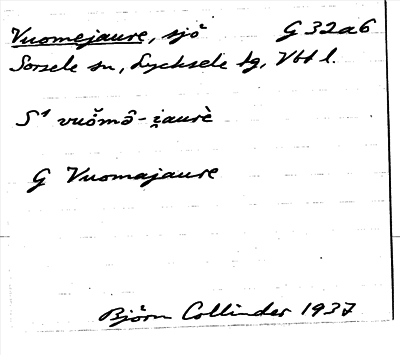 Vuomejaure, sjö G 32a6
Sorsele sn, Lycksele lg, Vbtl.
S¹ vuǒmə̑-i̯aurè
G Vuomajaure
Björn Collinder 1937